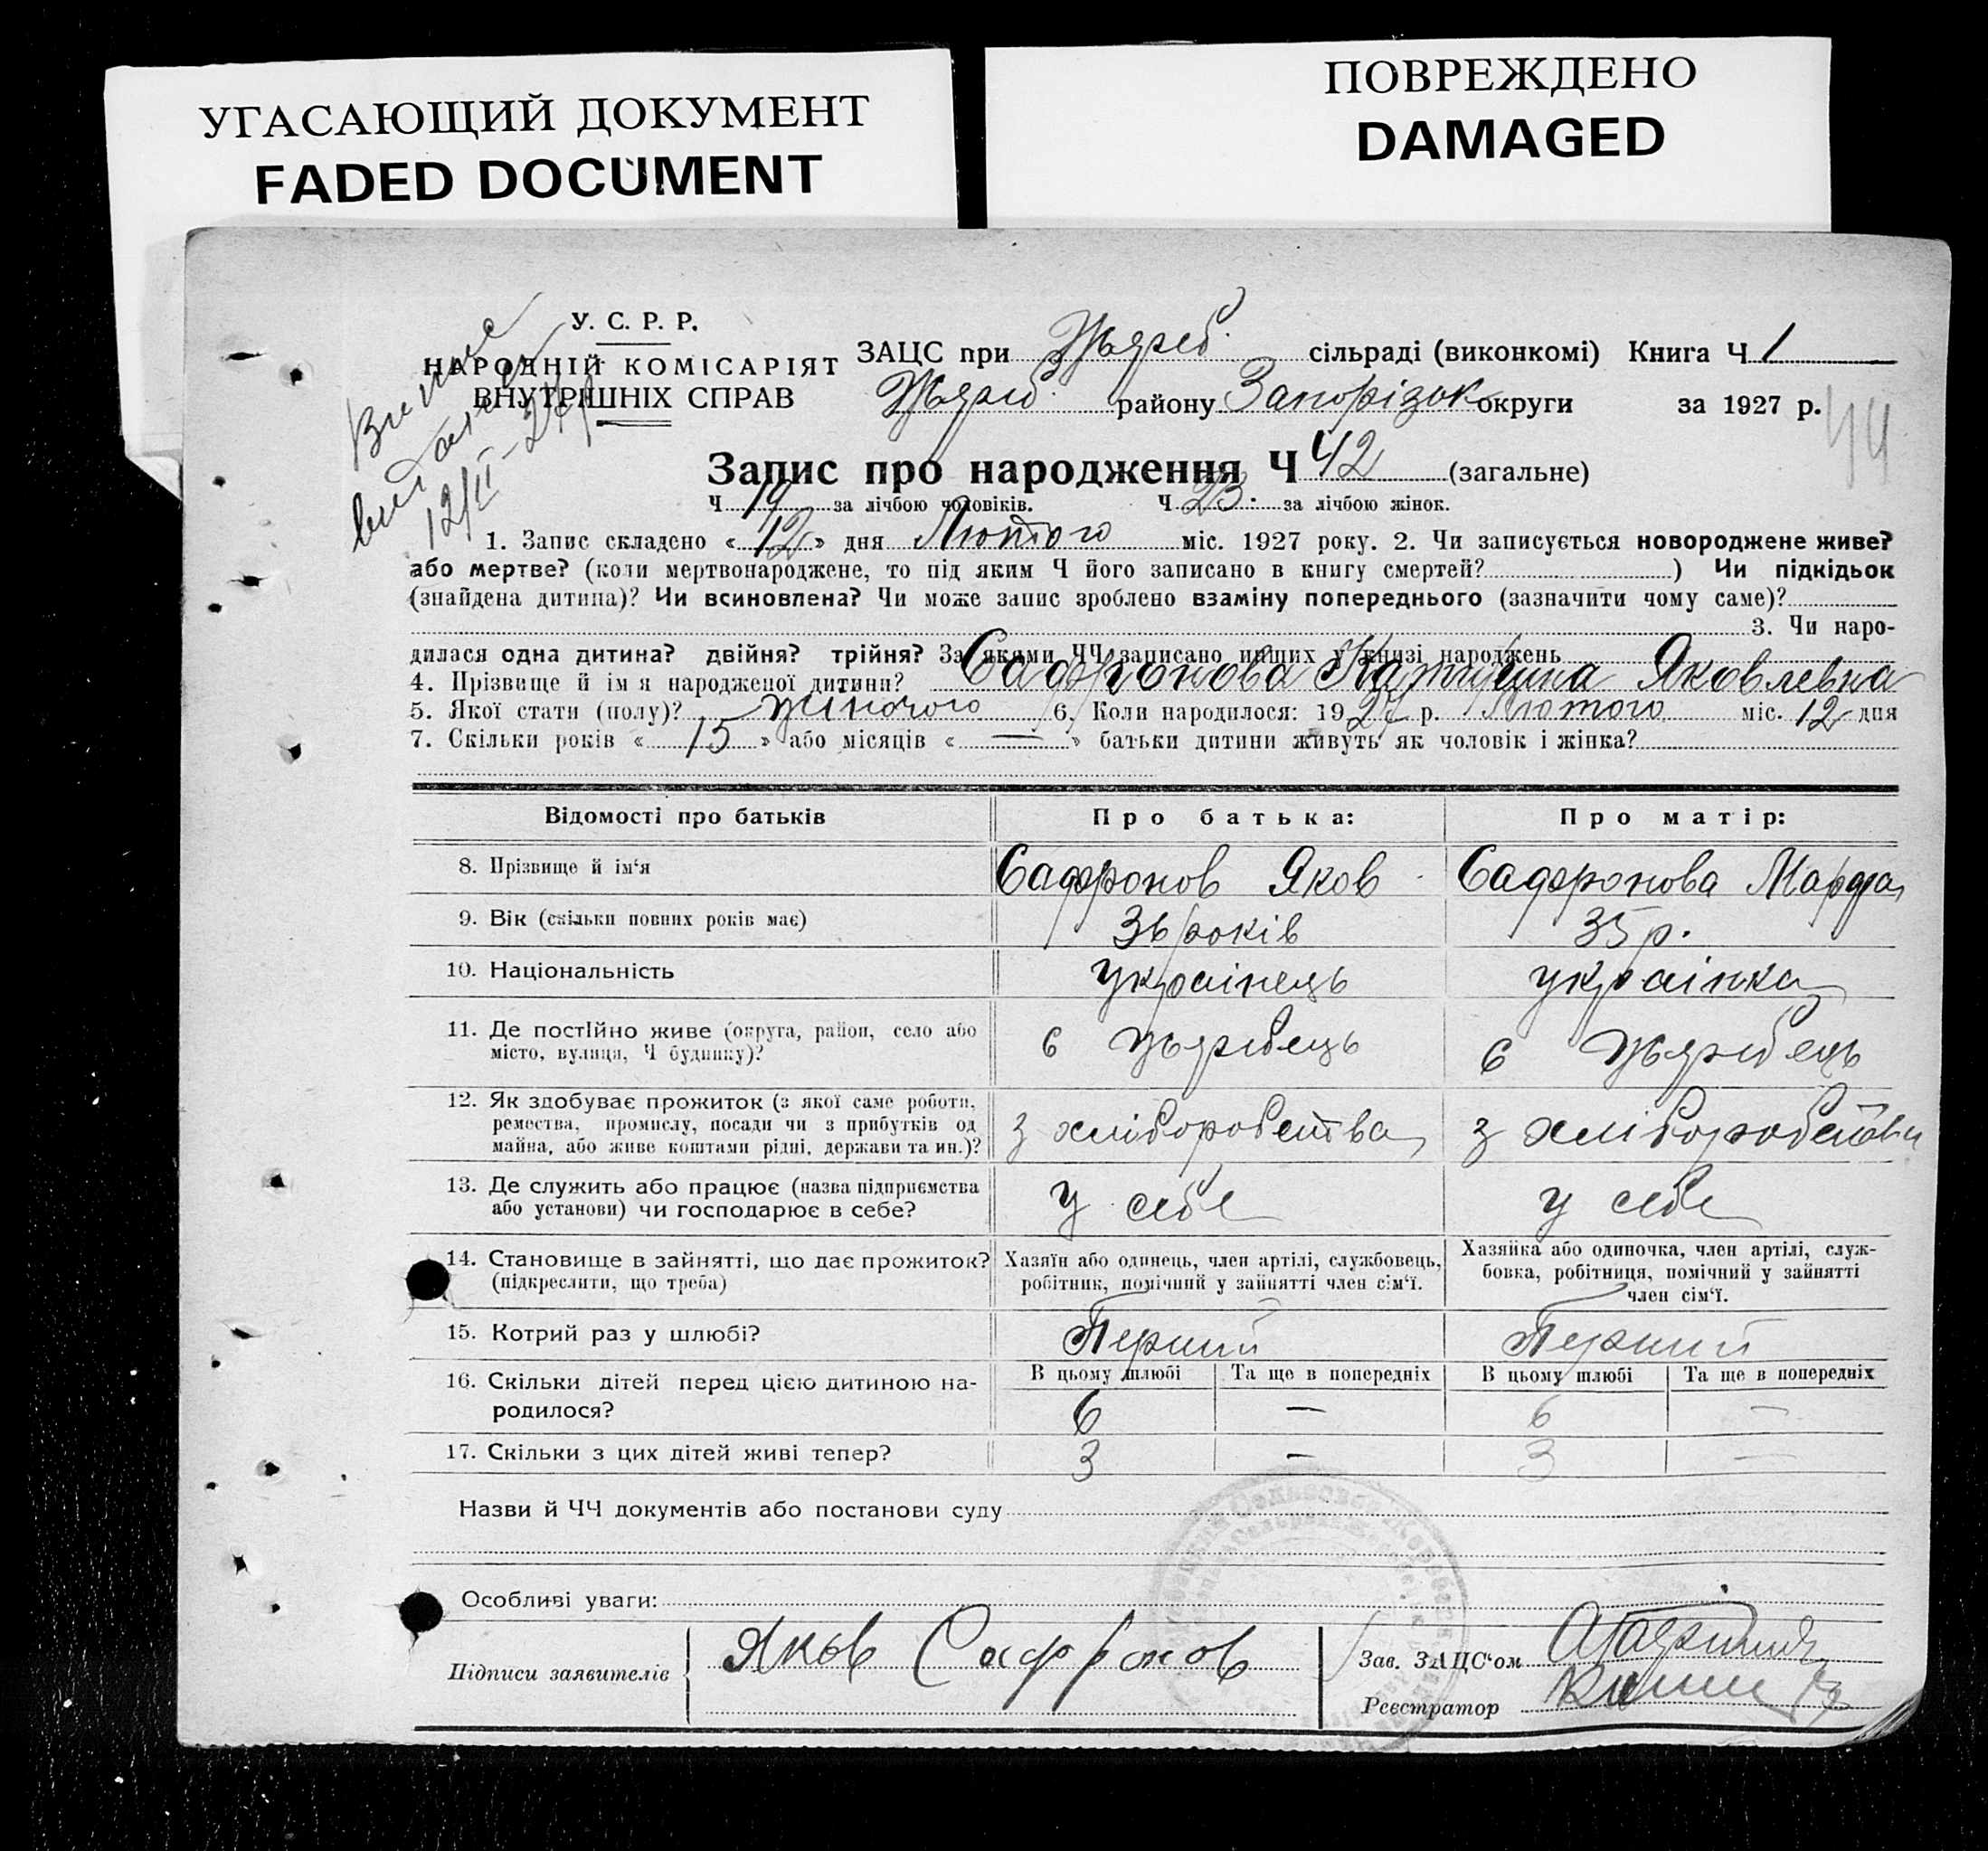 УГАСАЮЩИЙ ДОКУМЕНТ
FADED DOCUMENT
ПОВРЕЖДЕНО
DAMAGED
У. С. Р. Р.
НАРОДНІЙ КОМІСАРІЯТ
ВНУТРІШНІХ СПРАВ
12/II-27р
ЗАЦС при Жереб. сільраді (виконкомі) Книга Ч 1
Жереб. району Запорізьк округи за 1927 р.
44
Запис про народження Ч 42 (загальне)
Ч 19 за лічбою чоловіків. Ч 23. за лічбою жінок.
1. Запис складено « 12 » дня Лютого міс. 1927 року. 2. Чи записується новороджене живе?
або мертве? (коли мертвонароджене, то під яким Ч його записано в книгу смертей? ) Чи підкідьок
(знайдена дитина)? Чи всиновлена? Чи може запис зроблено взаміну попереднього (зазначити чому саме)?
3. Чи наро-
дилася одна дитина? двійня? трійня? За якими ЧЧ записано инших у книзі народжень
4. Прізвище й ім'я народженої дитини? Сафронова Катирина Яковлевна
5. Якої стати (полу)? жіночого 6. Коли народилося: 1927 р. Лютого міс. 12 дня
7. Скільки років « 15 » або місяців « — » батьки дитини живуть як чоловік і жінка?
Відомості про батьків Про батька: Про матір:
8. Прізвище й ім'я Сафронов Яков Сафронова Марфа
9. Вік (скільки повних років має) 36 років 35 р.
10. Національність українець українка
11. Де постійно живе (округа, район, село або
місто, вулиця, Ч будинку)?
12. Як здобуває прожиток (з якої саме роботи,
ремества, промислу, посади чи з прибутків од
майна, або живе коштами рідні, держави та ин.)? з хліборобства з хліборобства
13. Де служить або працює (назва підприємства
або установи) чи господарює в себе? у себе у себе
14. Становище в зайнятті, що дає прожиток?
(підкреслити, що треба)
Хазяїн або одинець, член артілі, службовець,
робітник, помічний у зайнятті член сім'ї.
Хазяйка або одиночка, член артілі, служ-
бовка, робітниця, помічний у зайнятті
член сім'ї.
15. Котрий раз у шлюбі? Перший Перший
В цьому шлюбі Та ще в попередніх В цьому шлюбі Та ще в попередніх
16. Скільки дітей перед цією дитиною на-
родилося? 6 — 6 —
17. Скільки з цих дітей живі тепер? 3 — 3 —
Назви й ЧЧ документів або постанови суду
Особливі уваги:
Підписи заявителів Яков Сафронов
Зав. ЗАЦС'ом
Реєстратор